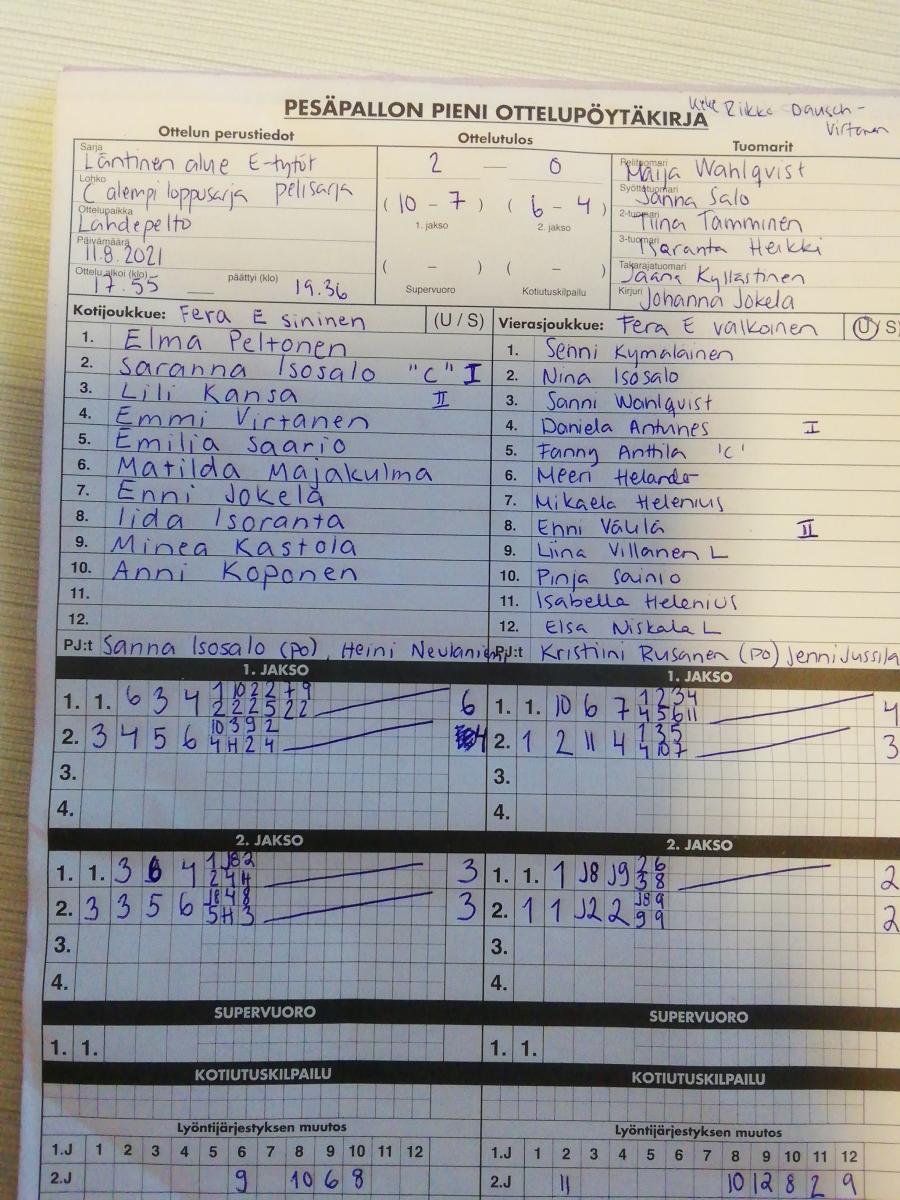 PESÄPALLON PIENI OTTELUPÖYTÄKIRJA
Riikka Dausch-
Virtanen
Ottelun perustiedot
Sarja
Läntinen alue E-tytöt
Lohko
C alempi loppusarja pelisarja
Ottelupaikka
Lähdepelto
Päivämäärä
11.8.2021
Ottelu alkoi (klo) päättyi (klo)
17.55 — 19.36
Ottelutulos
2 — 0
( 10 - 7 ) ( 6 - 4 )
1. jakso 2. jakso
( - ) ( - )
Supervuoro Kotiutuskilpailu
Tuomarit
Pelituomari
Maija Wahlqvist
Syöttötuomari
Sanna Salo
2-tuomari
Tiina Tamminen
3-tuomari
Isoranta Heikki
Takarajatuomari
Jaana Kyllästinen
Kirjuri
Johanna Jokela
Kotijoukkue: Fera E sininen (U / S)
1. Elma Peltonen
2. Saranna Isosalo "C" I
3. Lili Kansa II
4. Emmi Virtanen
5. Emilia Saario
6. Matilda Majakulma
7. Enni Jokela
8. Iida Isoranta
9. Minea Kastola
10. Anni Koponen
11.
12.
PJ:t Sanna Isosalo (PO), Heini
Vierasjoukkue: Fera E valkoinen (U / S)
1. Senni Kymäläinen
2. Nina Isosalo
3. Sanni Wahlqvist
4. Daniela Antunes I
5. Fanny Anttila 'C'
6. Meeri Helander
7. Mikaela Helenius
8. Enni Väulä II
9. Liina Villanen L
10. Pinja Sainio
11. Isabella Helenius
12. Elsa Niskala L
PJ:t Kristiini Rusanen (PO) Jenni Jussila
1. JAKSO
1. 1. 6 3 4 1 10 2 2 + 9 6
2 2 2 5 2 2
2. 3 4 5 6 10 3 9 2 4
4 H 2 4
3.
4.
1. JAKSO
1. 1. 10 6 7 1 2 3 4 4
4 5 6 11
2. 1 2 11 4 1 3 5 3
4 10 7
3.
4.
2. JAKSO
1. 1. 3 6 4 1 J8 2 3
2 4 H
2. 3 3 5 6 J8 4 8 3
5 H 3
3.
4.
2. JAKSO
1. 1. 1 J8 J9 2 6 2
3 8
2. 1 1 J2 2 J8 9 2
9 9
3.
4.
SUPERVUORO
1. 1.
SUPERVUORO
1. 1.
KOTIUTUSKILPAILU
KOTIUTUSKILPAILU
Lyöntijärjestyksen muutos
1.J 1 2 3 4 5 6 7 8 9 10 11 12
2.J 9 10 6 8
Lyöntijärjestyksen muutos
1.J 1 2 3 4 5 6 7 8 9 10 11 12
2.J 11 10 12 8 2 9